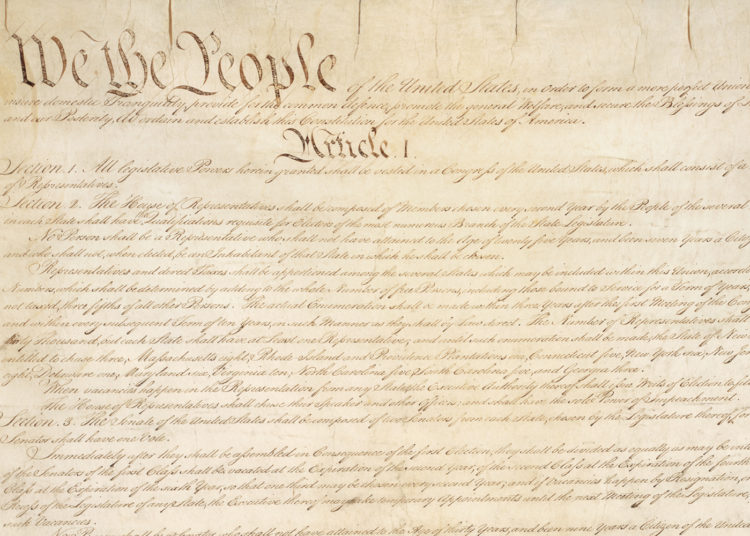 We the People of the United States, in Order to form a more perfect Union
insure domestic Tranquility, provide for the common defence, promote the general Welfare, and secure the Blessings of
and our Posterity, do ordain and establish this Constitution for the United States of America.
Article. I.
Section. 1. All legislative Powers herein granted shall be vested in a Congress of the United States, which shall consist of a
of Representatives.
Section. 2. The House of Representatives shall be composed of Members chosen every second Year by the People of the several
in each State shall have Qualifications requisite for Electors of the most numerous Branch of the State Legislature.
No Person shall be a Representative who shall not have attained to the Age of twenty five Years, and been seven Years a
and who shall not, when elected, be an Inhabitant of that State in which he shall be chosen.
Representatives and direct Taxes shall be apportioned among the several States which may be included within this Union,
Numbers, which shall be determined by adding to the whole Number of free Persons, including those bound to Service for a Term of Years,
not taxed, three fifths of all other Persons. The actual Enumeration shall be made within three Years after the first Meeting of the
and within every subsequent Term of ten Years, in such Manner as they shall by Law direct. The Number of Representatives shall
thirty Thousand, but each State shall have at Least one Representative; and until such enumeration shall be made, the State of New
entitled to chuse three, Massachusetts eight, Rhode Island and Providence Plantations one, Connecticut five, New York six, New
eight, Delaware one, Maryland six, Virginia ten, North Carolina five, South Carolina five, and Georgia three.
When vacancies happen in the Representation from any State, the Executive Authority thereof shall issue Writs of Election to
The House of Representatives shall chuse their Speaker and other Officers; and shall have the sole Power of Impeachment.
Section. 3. The Senate of the United States shall be composed of two Senators from each State, chosen by the Legislature thereof, for
Senator shall have one Vote.
Immediately after they shall be assembled in Consequence of the first Election, they shall be divided as equally as may be
of the Senators of the first Class shall be vacated at the Expiration of the second Year, of the second Class at the Expiration of the fourth
Class at the Expiration of the sixth Year, so that one third may be chosen every second Year; and if Vacancies happen by Resignation, or
Recess of the Legislature of any State, the Executive thereof may make temporary Appointments until the next Meeting of the Legislature
such Vacancies.
No Person shall be a Senator who shall not have attained to the Age of thirty Years, and been nine Years a Citizen of the United